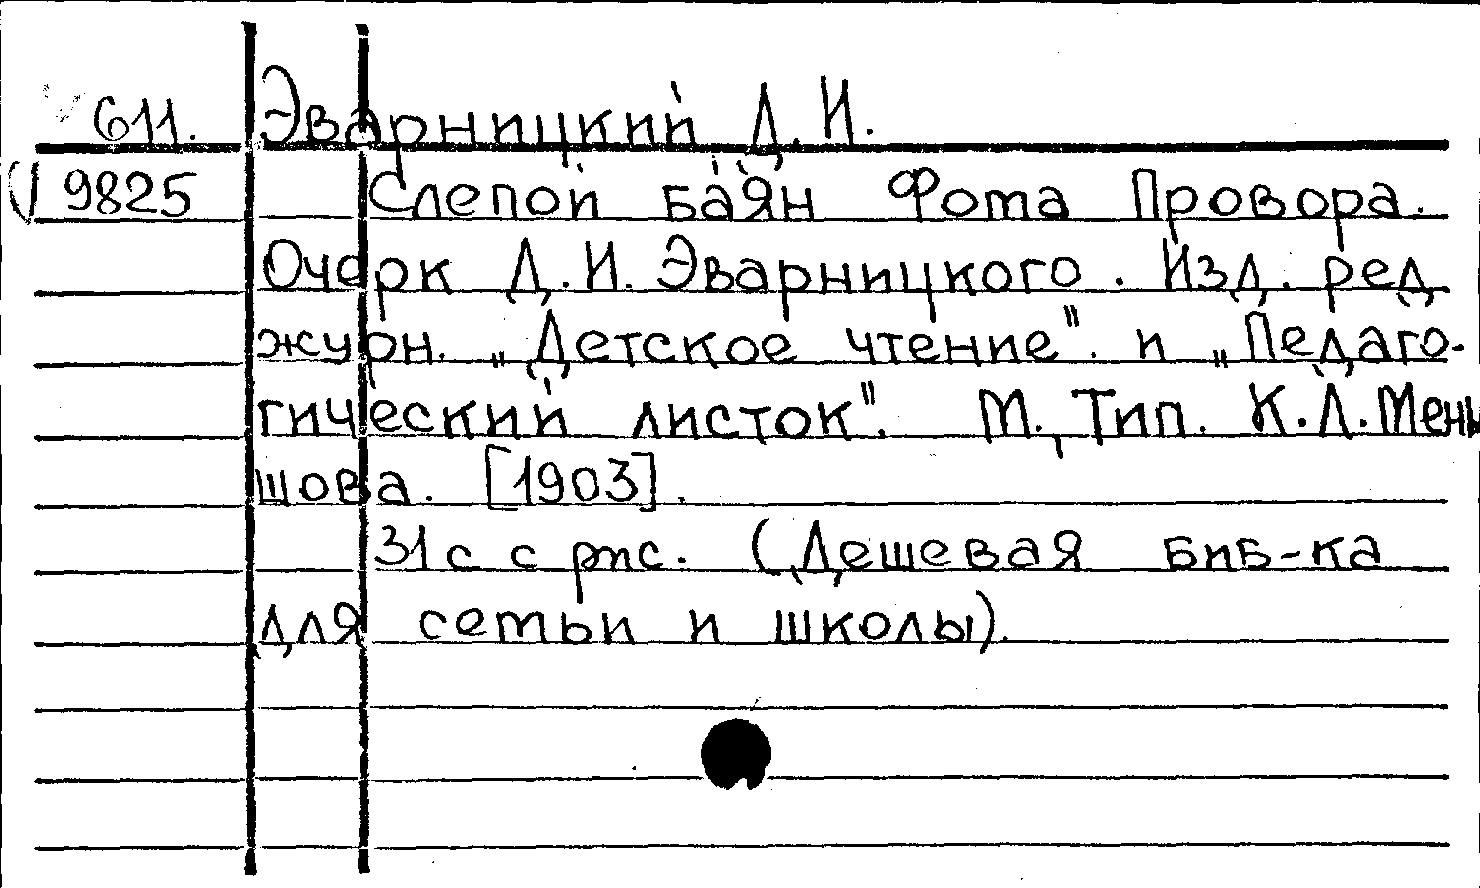 611. Эварницкий Д.И.
9825 Слепой баян Фома Провора.
Очерк Д.И. Эварницкого. Изд. ред
журн. „Детское чтение". и „Педаго-
гический листок". М., Тип. К.Л. Мень
шова. [1903].
31 с с рис. (Дешевая биб-ка
для семьи и школы).